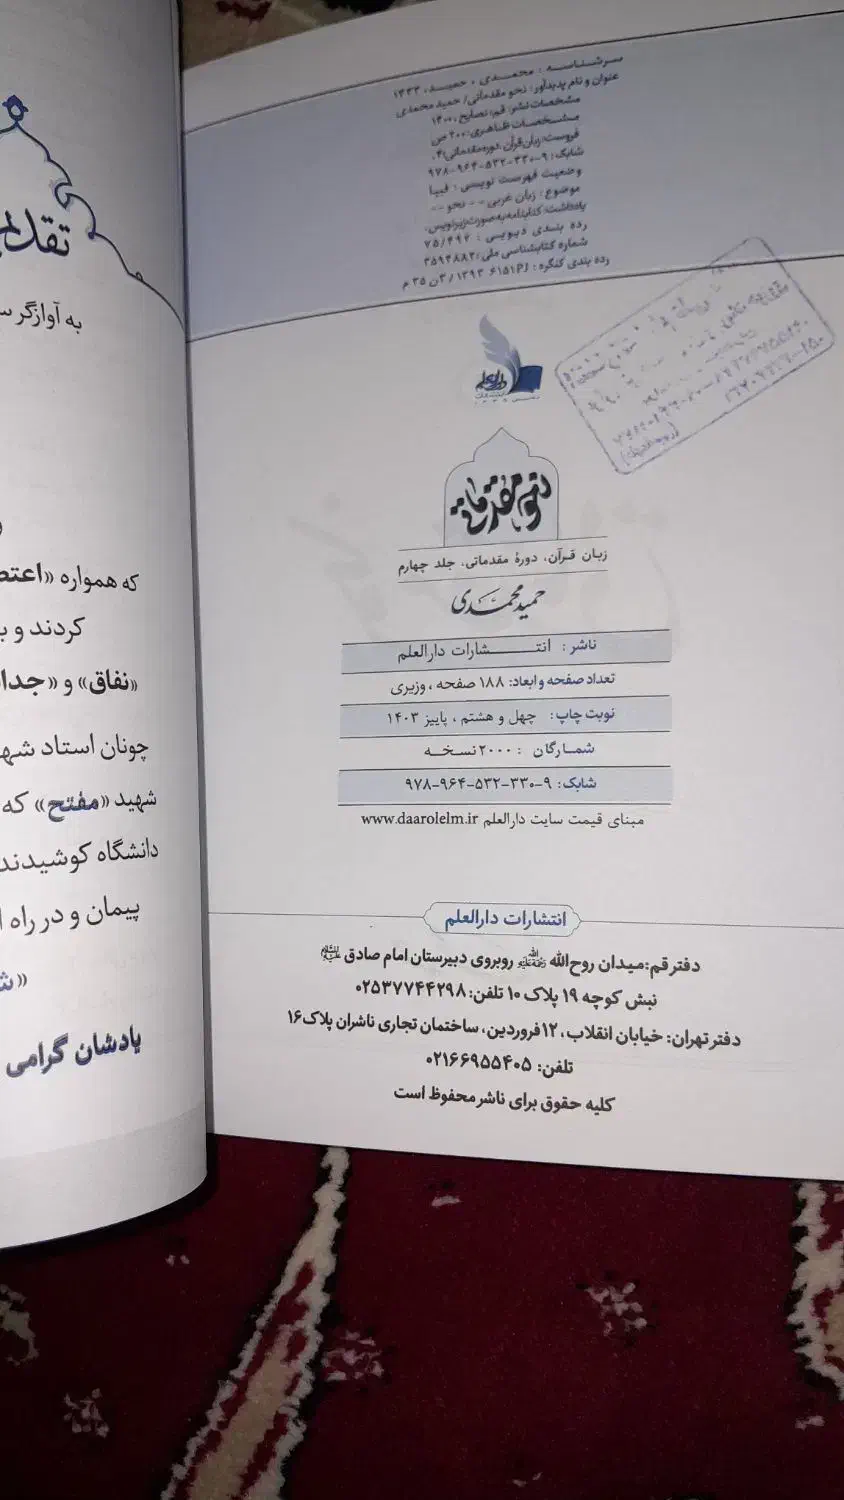 سرشناسه : محمدی ، حمید، ۱۳۳۳
عنوان و نام پدیدآور: نحو مقدماتی/ حمید محمدی
مشخصات نشر: قم: نصایح، ۱۴۰۰
مشخصات ظاهری: ۲۰۰ ص
فروست: زبان قرآن، دوره مقدماتی؛ ۴.
شابک: ۹-۳۳۰-۵۳۲-۹۶۴-۹۷۸
وضعیت فهرست نویسی : فیپا
موضوع: زبان عربی -- نحو --
یادداشت: کتابنامه به صورت زیرنویس.
رده بندی دیویی : ۴۹۲/۷۵
شماره کتابشناسی ملی: ۳۵۹۴۸۸۲
رده بندی کنگره: ۶۱۵۱PJ ۱۳۹۳ /۳ن ۳۵ م
دارالعلم
نحو مقدماتی
زبان قرآن، دورهٔ مقدماتی، جلد چهارم
حمید محمدی
ناشر: انتشارات دارالعلم
تعداد صفحه و ابعاد: ۱۸۸ صفحه ، وزیری
نوبت چاپ: چهل و هشتم ، پاییز ۱۴۰۳
شمارگان : ۲۰۰۰ نسخه
شابک: ۹-۳۳۰-۵۳۲-۹۶۴-۹۷۸
مبنای قیمت سایت دارالعلم www.daarolelm.ir
انتشارات دارالعلم
دفتر قم: میدان روح‌الله روبروی دبیرستان امام صادق
نبش کوچه ۱۹ پلاک ۱۰ تلفن: ۰۲۵۳۷۷۴۴۲۹۸
دفتر تهران: خیابان انقلاب، ۱۲ فروردین، ساختمان تجاری ناشران پلاک ۱۶
تلفن: ۰۲۱۶۶۹۵۵۴۰۵
کلیه حقوق برای ناشر محفوظ است
به آوازگر
که همواره «
کردند و
«نفاق» و «
چونان استاد
شهید «مفتح» که
دانشگاه کوشیدند
پیمان و در راه
یادشان گرامی